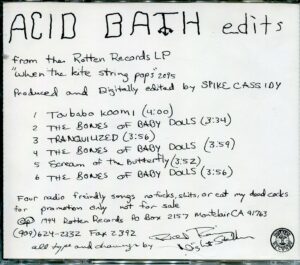 ACID BATH edits
from the Rotten Records LP
"when the kite string pops" 2095
Produced and Digitally edited by SPIKE CASSIDY
1 Toubabo koomi (4:00)
2 THE BONES OF BABY DOLLS (3:34)
3 TRANQUILIZED (3:56)
4 THE BONES OF BABY DOLLS (3:59)
5 Scream of the Butterfly (3:52)
6 THE BONES OF BABY DOLLS (3:56)
Four radio friendly songs no fucks, shits, or eat my dead cocks
for promotion only not for sale
© ℗ 1994 Rotten Records PO Box 2157 Montclair CA 91763
(909) 624-2332 Fax 2392
all type and drawings by